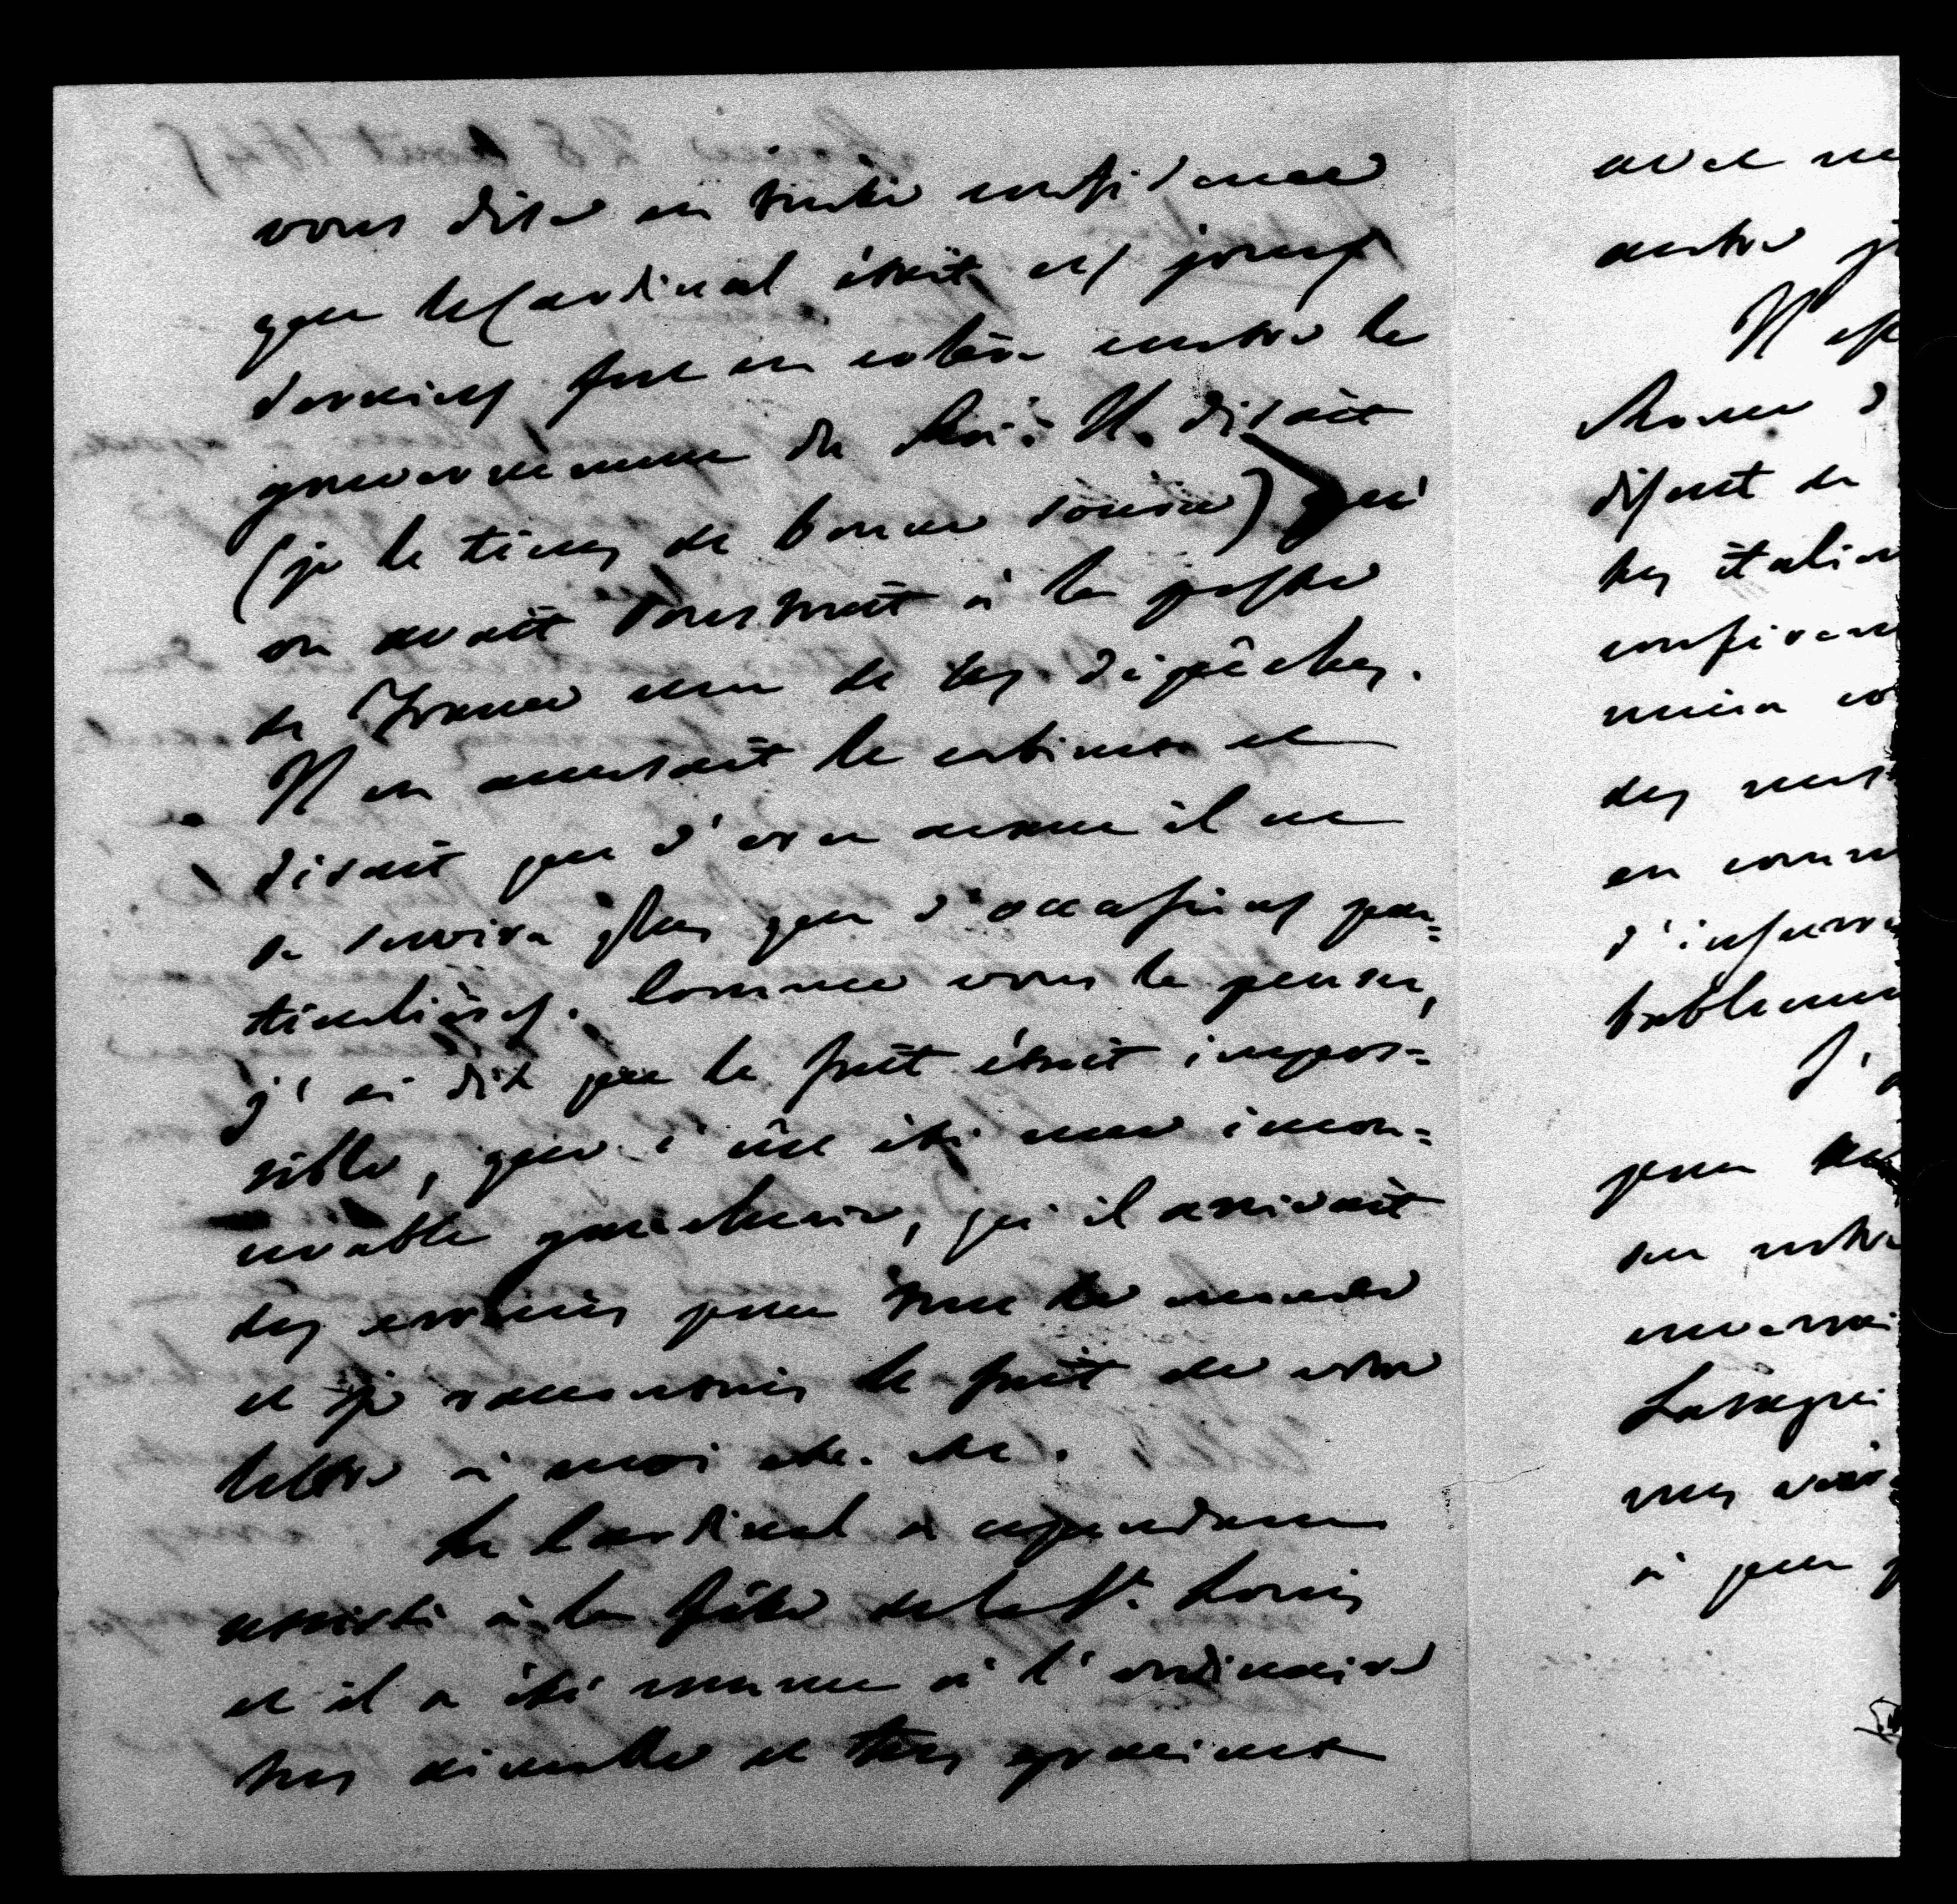 vous dire en toute confidence
que le Cardinal était ces jours
derniers fort en colère contre le
gouvernement du Roi. Il disait
(je le tiens de bonne source) qu'
on avait soustrait à la poste
de France une de ses dépêches.
Il en accusait le cabinet et
disait que d'ores avant il ne
se servira plus que d'occasions par=
ticulières. Comme vous le pensez,
j'ai dit que le fait était impos=
sible, que c'eût été une incon=
cevable gaucherie, qu'il arrivait
des erreurs pour tout le monde
et je racontais le fait de votre
lettre à moi etc. etc.
Le Cardinal a cependant
assisté à la fête de la St. Louis
et il a été comme à l'ordinaire
très aimable et très gracieux
avec
autre
Il est
Rome
disent de
les italien
en
d'insurre
J'
pour
sur notre
Lasagni
à peu